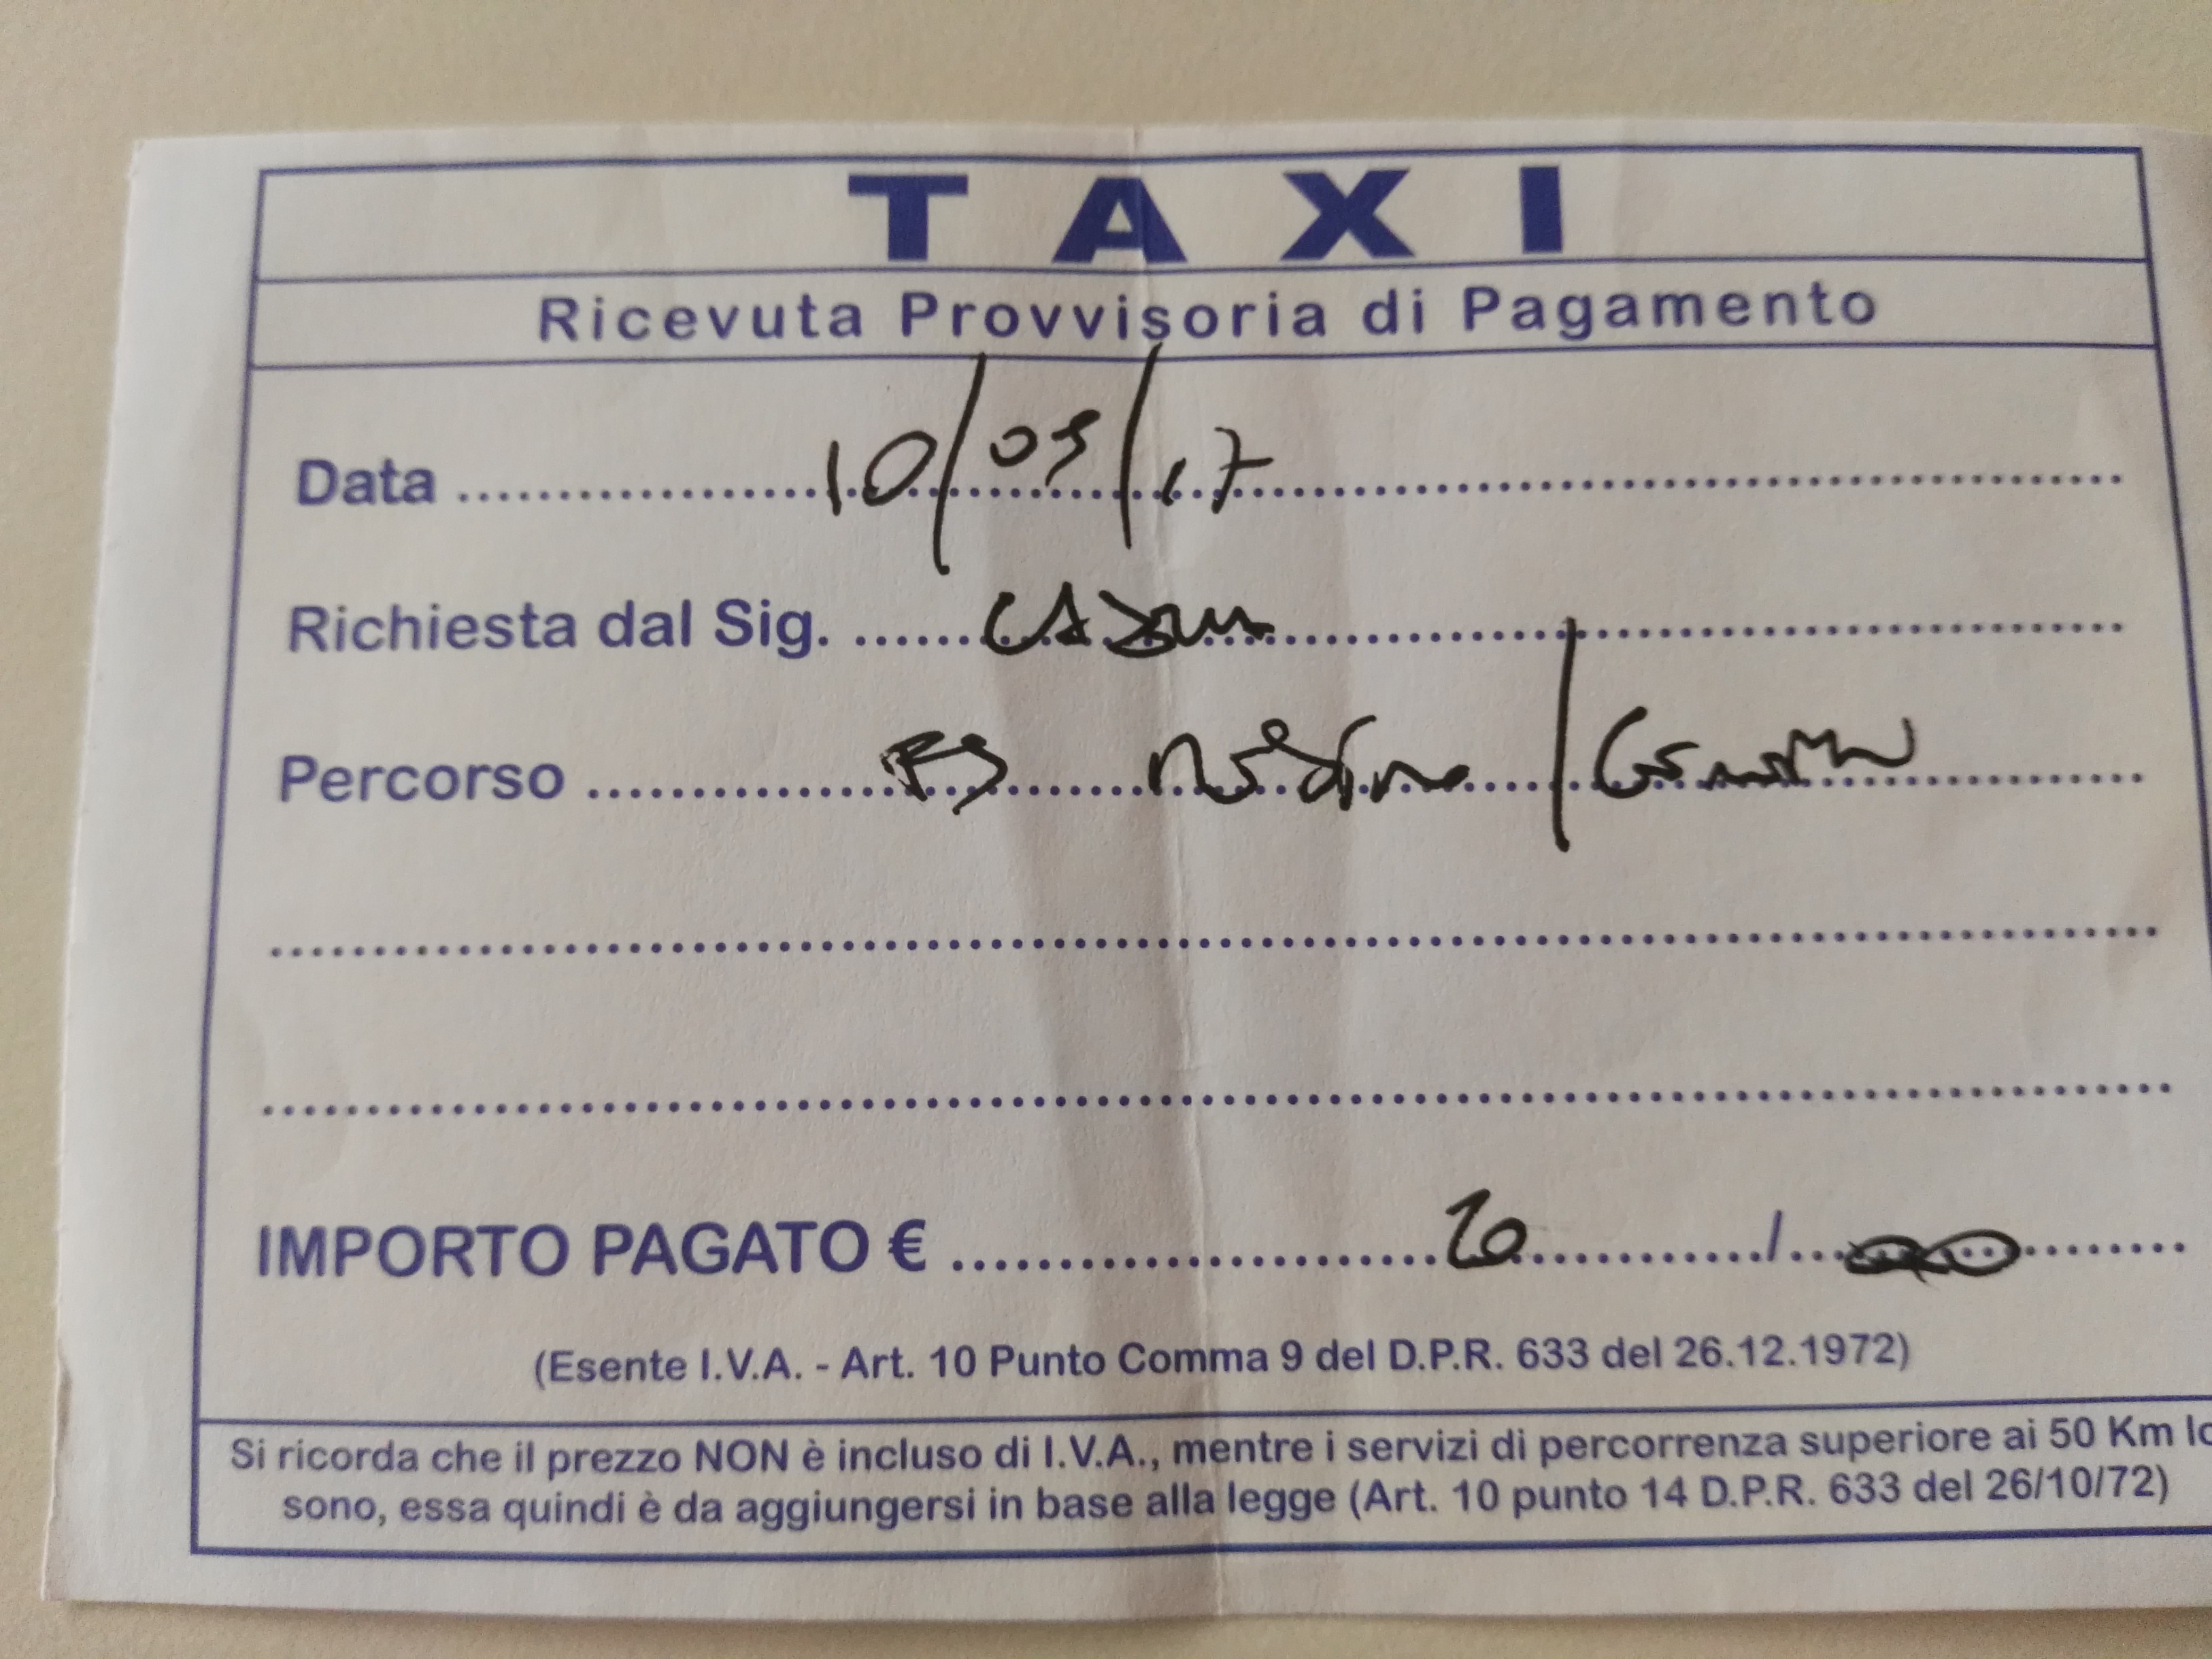 TAXI
Ricevuta Provvisoria di Pagamento
Data ..... 10/05/17
Richiesta dal Sig. .....
Percorso ..... FS
IMPORTO PAGATO € ..... 20 / 00
(Esente I.V.A. - Art. 10 Punto Comma 9 del D.P.R. 633 del 26.12.1972)
Si ricorda che il prezzo NON è incluso di I.V.A., mentre i servizi di percorrenza superiore ai 50 Km lo
sono, essa quindi è da aggiungersi in base alla legge (Art. 10 punto 14 D.P.R. 633 del 26/10/72)